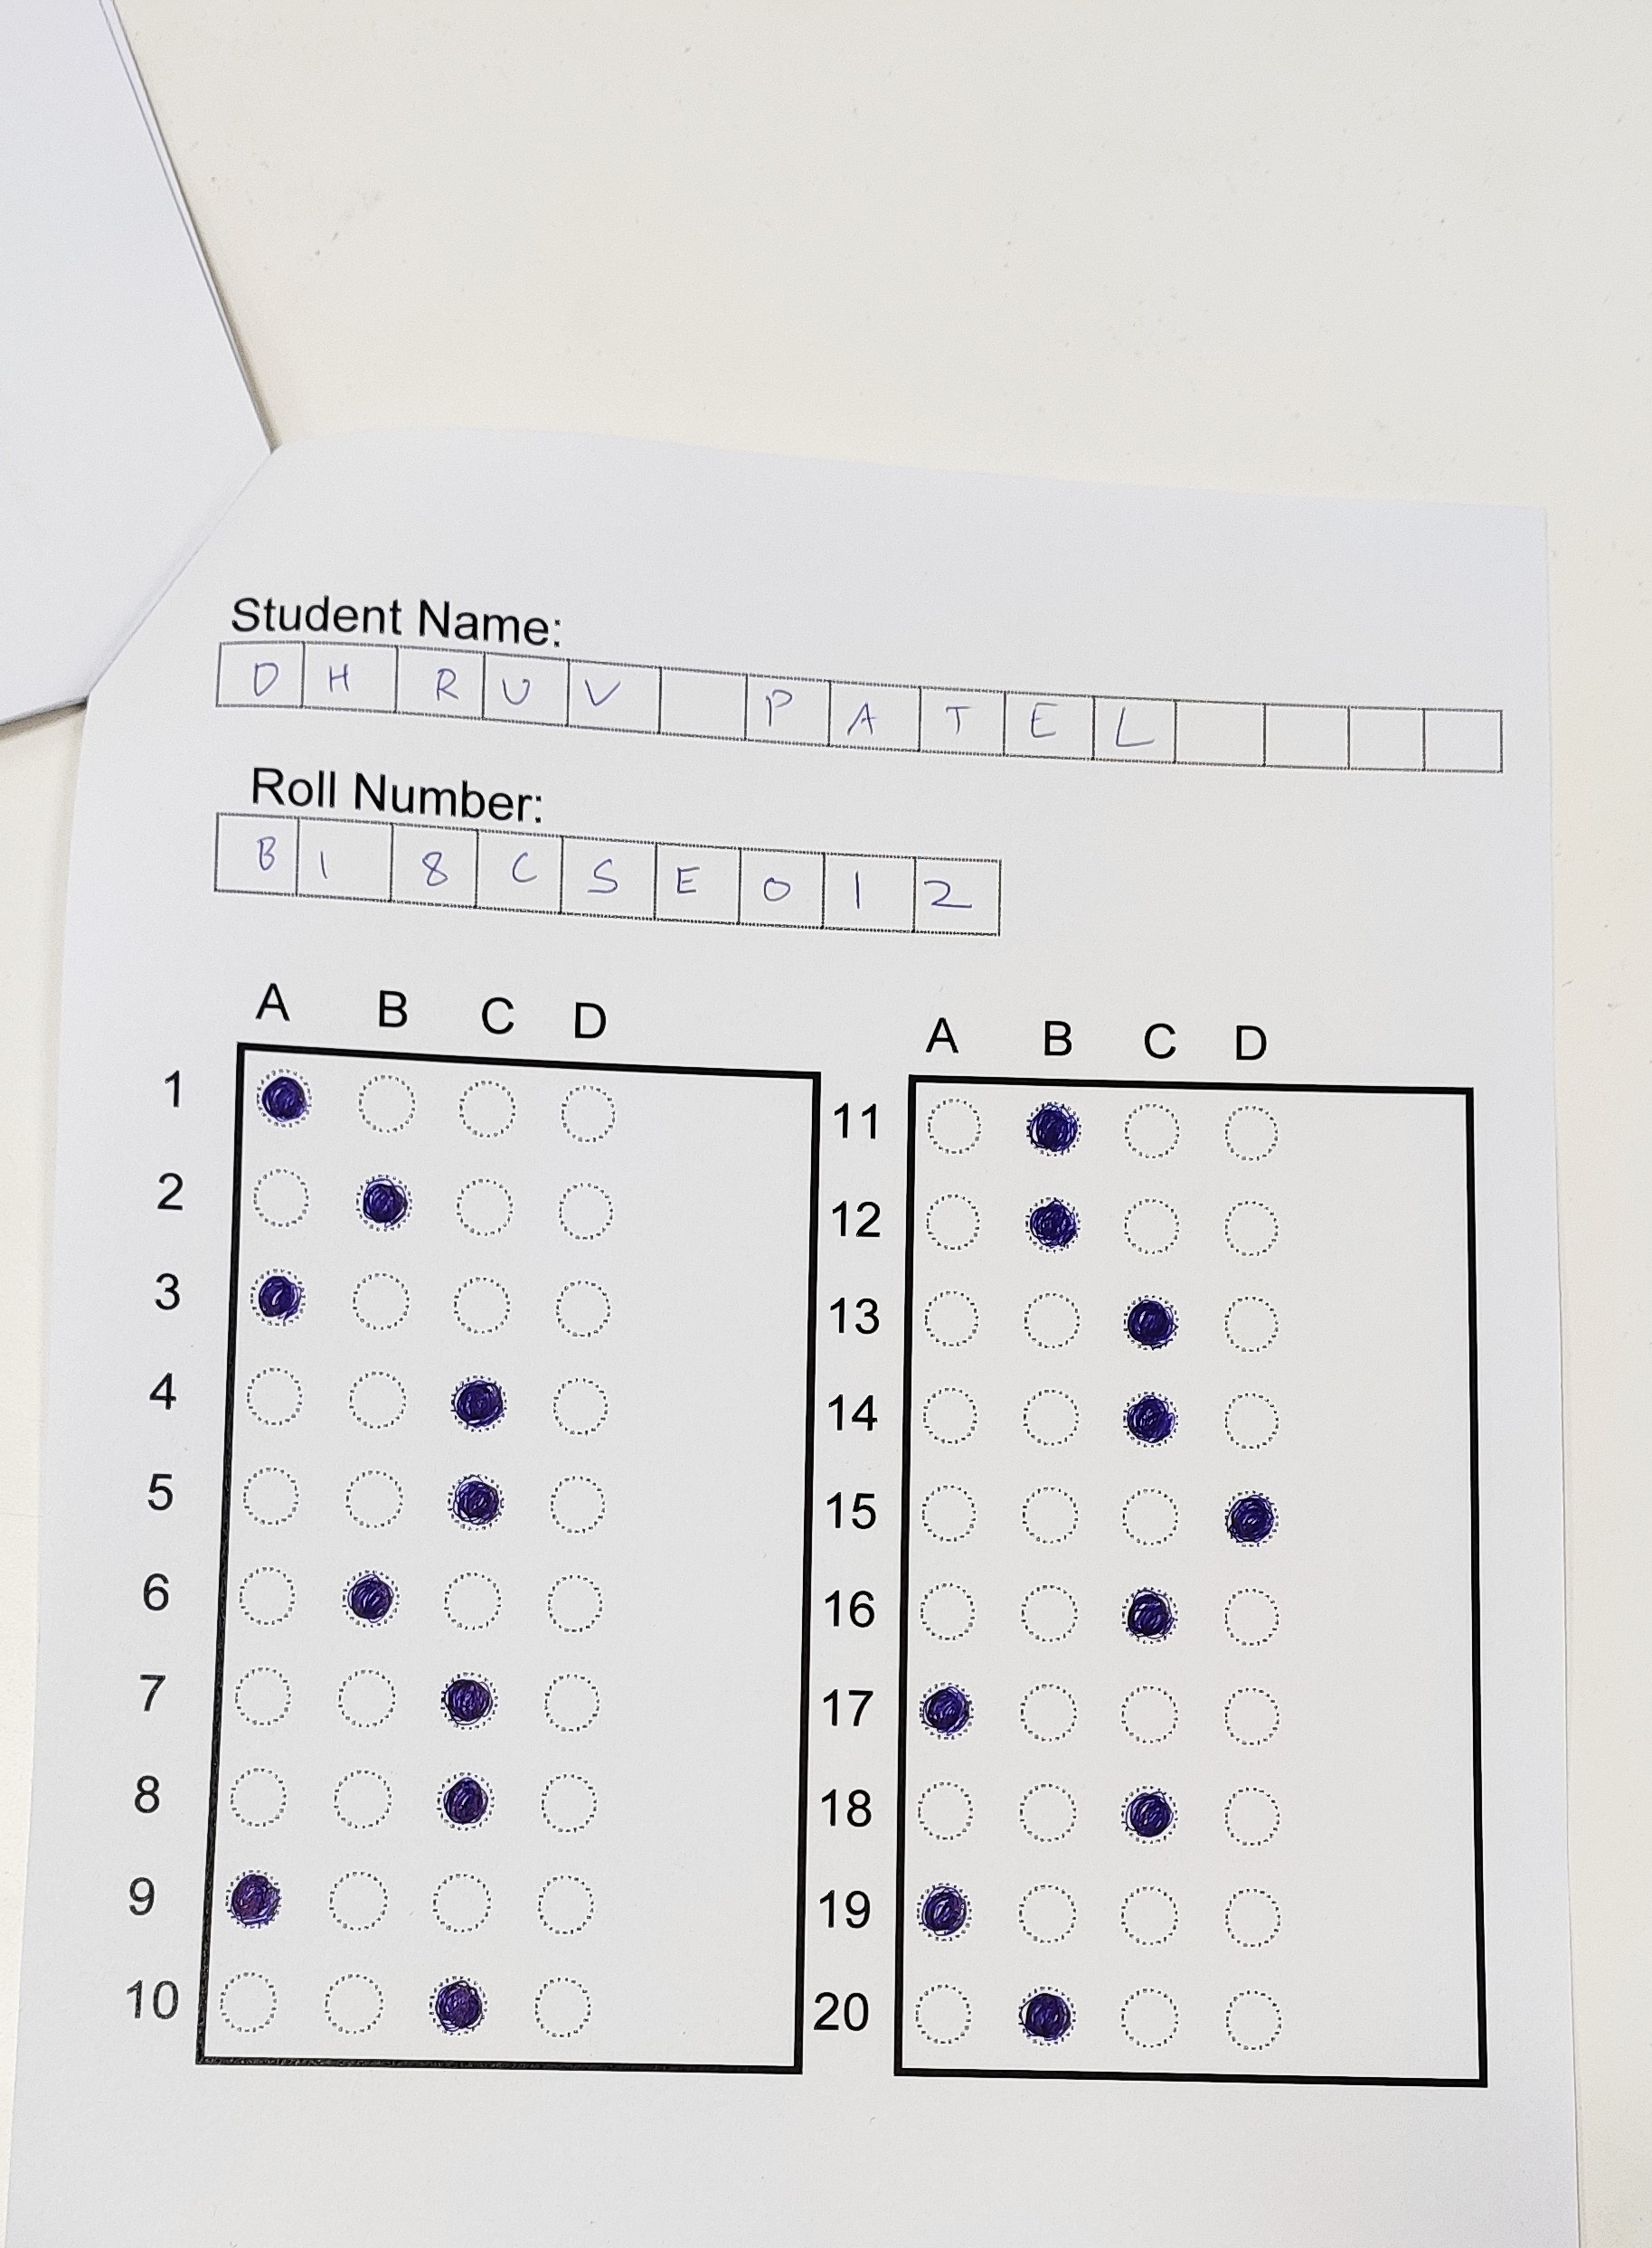 Student Name:
DHRUV PATEL
Roll Number:
B18CSE012
A B C D
1
2
3
4
5
6
7
8
9
10
A B C D
11
12
13
14
15
16
17
18
19
20